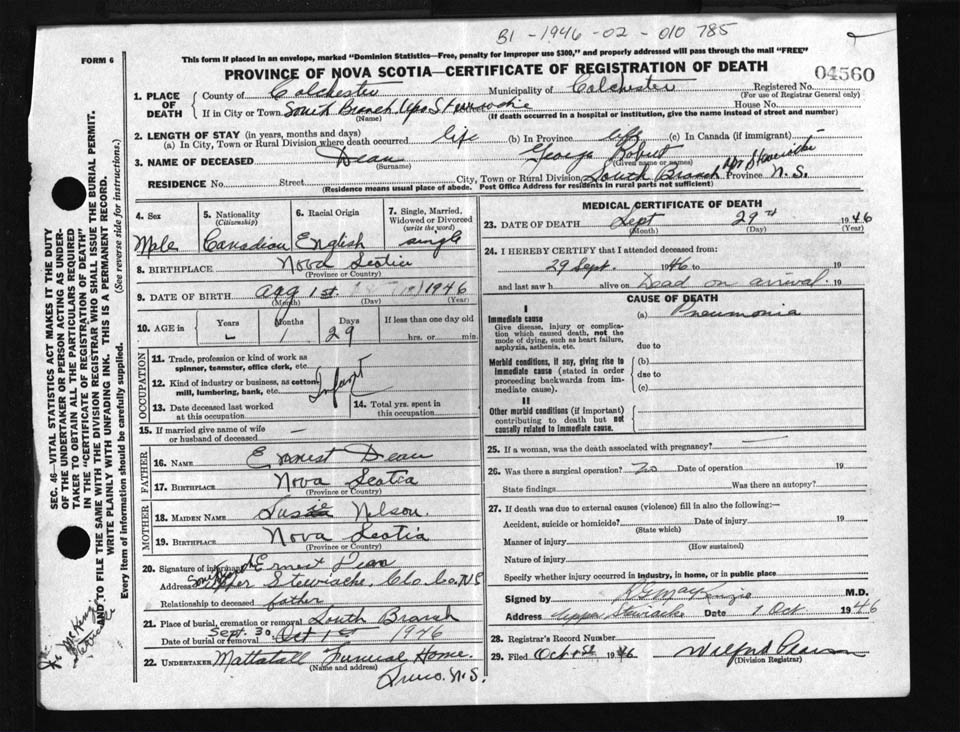 B1-1946-02-010785
FORM 6
This form if placed in an envelope, marked "Dominion Statistics—Free, penalty for improper use $300," and properly addressed will pass through the mail "FREE"
PROVINCE OF NOVA SCOTIA—CERTIFICATE OF REGISTRATION OF DEATH
04560
1. PLACE OF DEATH
County of Colchester Municipality of Colchester Registered No.
(For use of Registrar General only)
If in City or Town South Branch Upr Stewiacke House No.
(Name) (If death occurred in a hospital or institution, give the name instead of street and number)
2. LENGTH OF STAY (in years, months and days)
(a) In City, Town or Rural Division where death occurred life (b) In Province life (c) In Canada (if immigrant)
3. NAME OF DECEASED Dean George Robert
(Surname) (Given name or names)
RESIDENCE No. Street City, Town or Rural Division South Branch Upr Stewiacke Province N.S.
(Residence means usual place of abode. Post Office Address for residents in rural parts not sufficient)
4. Sex
Male
5. Nationality
(Citizenship)
Canadian
6. Racial Origin
English
7. Single, Married, Widowed or Divorced
(write the word)
single
8. BIRTHPLACE Nova Scotia
(Province or Country)
9. DATE OF BIRTH Aug 1st 1946
(Month) (Day) (Year)
10. AGE in
Years
Months
1
Days
29
If less than one day old
hrs. or min.
OCCUPATION
11. Trade, profession or kind of work as
spinner, teamster, office clerk, etc.
12. Kind of industry or business, as cotton
mill, lumbering, bank, etc. Infant
13. Date deceased last worked
at this occupation
14. Total yrs. spent in
this occupation
15. If married give name of wife
or husband of deceased —
FATHER
16. NAME Ernest Dean
17. BIRTHPLACE Nova Scotia
(Province or Country)
MOTHER
18. MAIDEN NAME Susie Nelson.
19. BIRTHPLACE Nova Scotia
(Province or Country)
20. Signature of informant Ernest Dean
Address Upper Stewiacke, Col. Co. N.S
Relationship to deceased father
21. Place of burial, cremation or removal South Branch
Date of burial or removal Sept. 30 Oct 1st 1946
22. UNDERTAKER Mattatall Funeral Home.
(Name and address)
Truro. N.S.
MEDICAL CERTIFICATE OF DEATH
23. DATE OF DEATH Sept 29th 1946
(Month) (Day) (Year)
24. I HEREBY CERTIFY that I attended deceased from:
29 Sept. 1946 to 19
and last saw h alive on Dead on arrival. 19
CAUSE OF DEATH
I
Immediate cause
Give disease, injury or complication which caused death, not the mode of dying, such as heart failure, asphyxia, asthenia, etc.
(a) Pneumonia
due to
Morbid conditions, if any, giving rise to immediate cause (stated in order proceeding backwards from immediate cause).
(b)
due to
(c)
II
Other morbid conditions (if important) contributing to death but not causally related to immediate cause.
25. If a woman, was the death associated with pregnancy? —
26. Was there a surgical operation? No Date of operation 19
State findings Was there an autopsy?
27. If death was due to external causes (violence) fill in also the following:—
Accident, suicide or homicide? Date of injury 19
(State which)
Manner of injury
(How sustained)
Nature of injury
Specify whether injury occurred in industry, in home, or in public place
Signed by MacKenzie M.D.
Address Upper Stewiacke Date 1 Oct 1946
28. Registrar's Record Number
29. Filed Oct 1st 1946 Wilfred
(Division Registrar)
SEC. 46—VITAL STATISTICS ACT MAKES IT THE DUTY
OF THE UNDERTAKER OR PERSON ACTING AS UNDER-
TAKER TO OBTAIN ALL THE PARTICULARS REQUIRED
IN THE "CERTIFICATE OF REGISTRATION OF DEATH"
AND TO FILE THE SAME WITH THE DIVISION REGISTRAR WHO SHALL ISSUE THE BURIAL PERMIT.
WRITE PLAINLY WITH UNFADING INK. THIS IS A PERMANENT RECORD.
Every item of information should be carefully supplied. (See reverse side for instructions.)